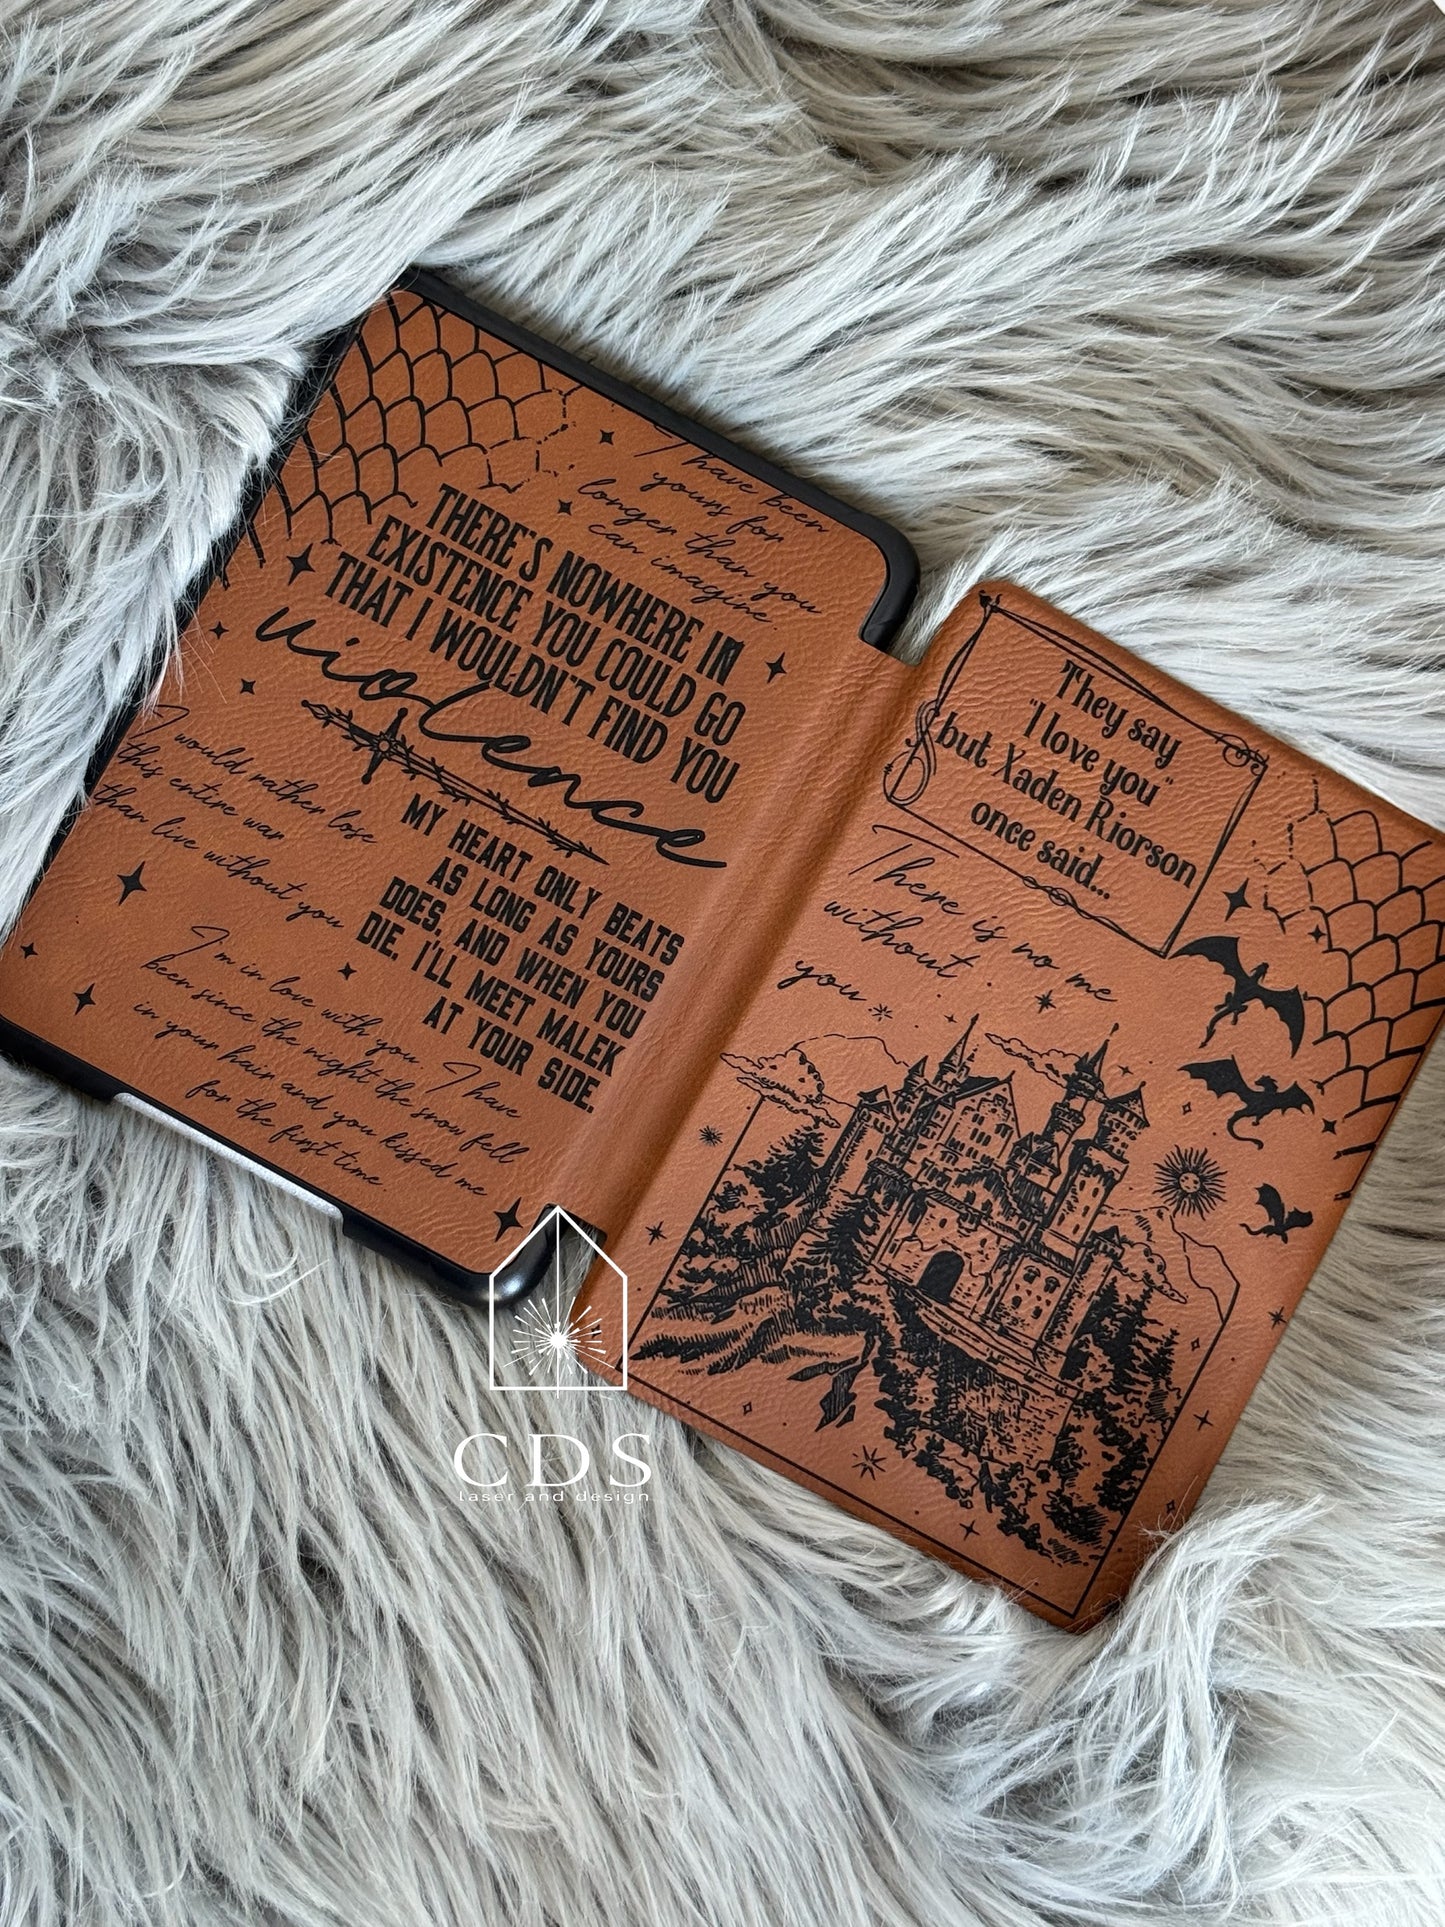 I have been
yours for
longer than you
can imagine.
THERE'S NOWHERE IN
EXISTENCE YOU COULD GO
THAT I WOULDN'T FIND YOU
violence
I would rather lose
this entire war
than live without you
MY HEART ONLY BEATS
AS LONG AS YOURS
DOES, AND WHEN YOU
DIE, I'LL MEET MALEK
AT YOUR SIDE.
I'm in love with you. I have
been since the night the snow fell
in your hair and you kissed me
for the first time.
They say
"I love you"
but Xaden Riorson
once said...
There is no me
without
you
CDS
laser and design